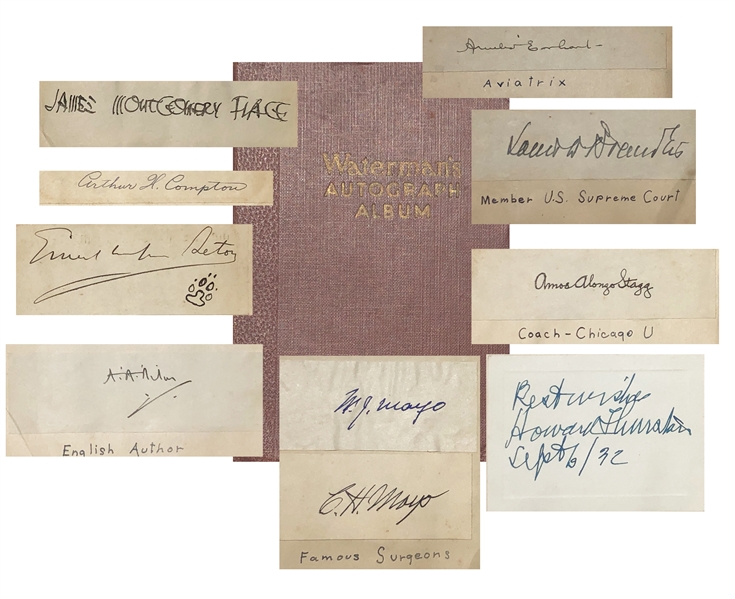 Amelia Earhart
Aviatrix
JAMES MONTGOMERY FLAGG
Waterman's
AUTOGRAPH
ALBUM
Louis D Brandeis
Member U.S. Supreme Court
Arthur H. Compton
Ernest Thompson Seton
Amos Alonzo Stagg
Coach-Chicago U
A.A. Milne
English Author
W. J. Mayo
C. H. Mayo
Famous Surgeons
Best wishes
Howard Thurston
Sept 6/32